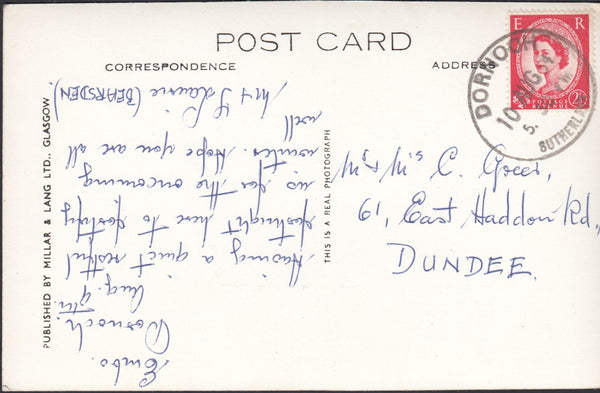 POST CARD
CORRESPONDENCE
ADDRESS
Embo.
Dornoch.
Aug. 9th.
Having a quiet restful
fortnight here to fortify
us for the oncoming
winter. Hope you are all
well
Mr & Mrs C. Greer,
61, East Haddon Rd,
DUNDEE.
E R
POSTAGE
REVENUE
2½
DORNOCH
10 AUG
SUTHERLAND
PUBLISHED BY MILLAR & LANG LTD., GLASGOW
THIS IS A REAL PHOTOGRAPH
(BEARSDEN)